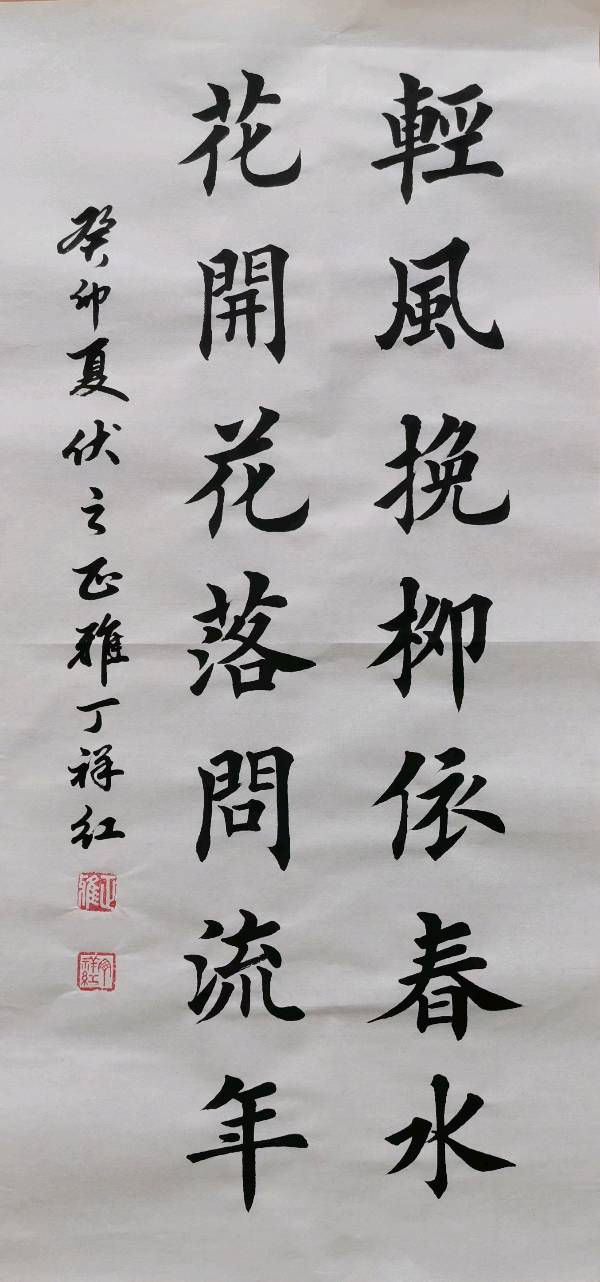 輕風挽柳依春水
花開花落問流年
癸卯夏伏之正雅丁祥红
正雅
丁祥红